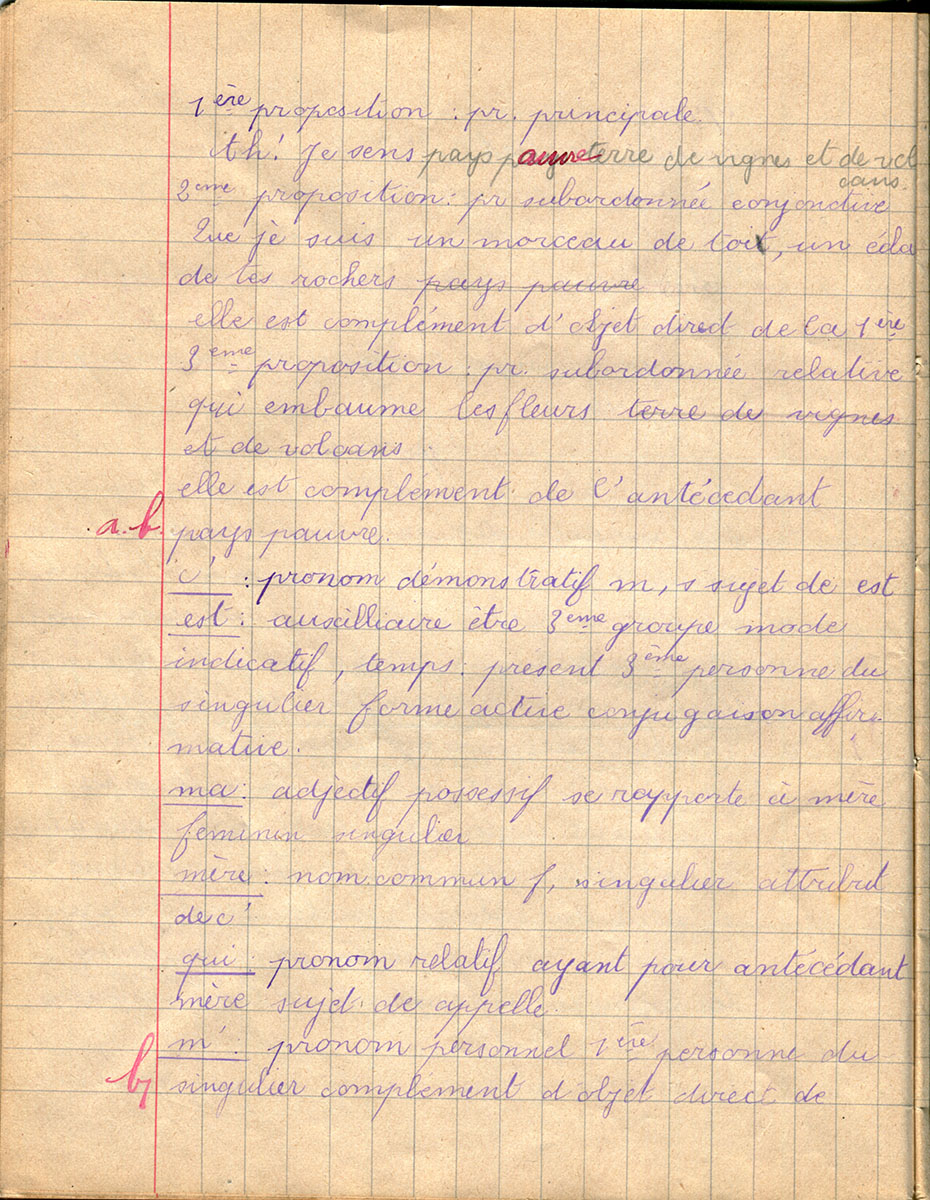 1ère proposition : pr. principale.
Ah! Je sens pays pauvre terre de vignes et de vol
cans.
2ème proposition : pr subordonnée conjonctive
Que je suis un morceau de toit, un écla
de tes rochers pays pauvre
elle est complément d'objet direct de la 1ère
3ème proposition : pr. subordonnée relative
qui embaume les fleurs terre de vignes
et de volcans.
elle est complément de l'antécédant
a.b. pays pauvre.
c' : pronom démonstratif m, s sujet de est
est : auxilliaire être 3ème groupe mode
indicatif, temps : present 3ème personne du
singulier forme active conjugaison affir-
mative.
ma : adjectif possessif se rapporte à mère
feminin singulier
mère : nom commun f, singulier attribut
de c'
qui : pronom relatif ayant pour antécédant
mère sujet de appelle.
m' : pronom personnel 1ère personne du
b singulier complement d'objet direct de